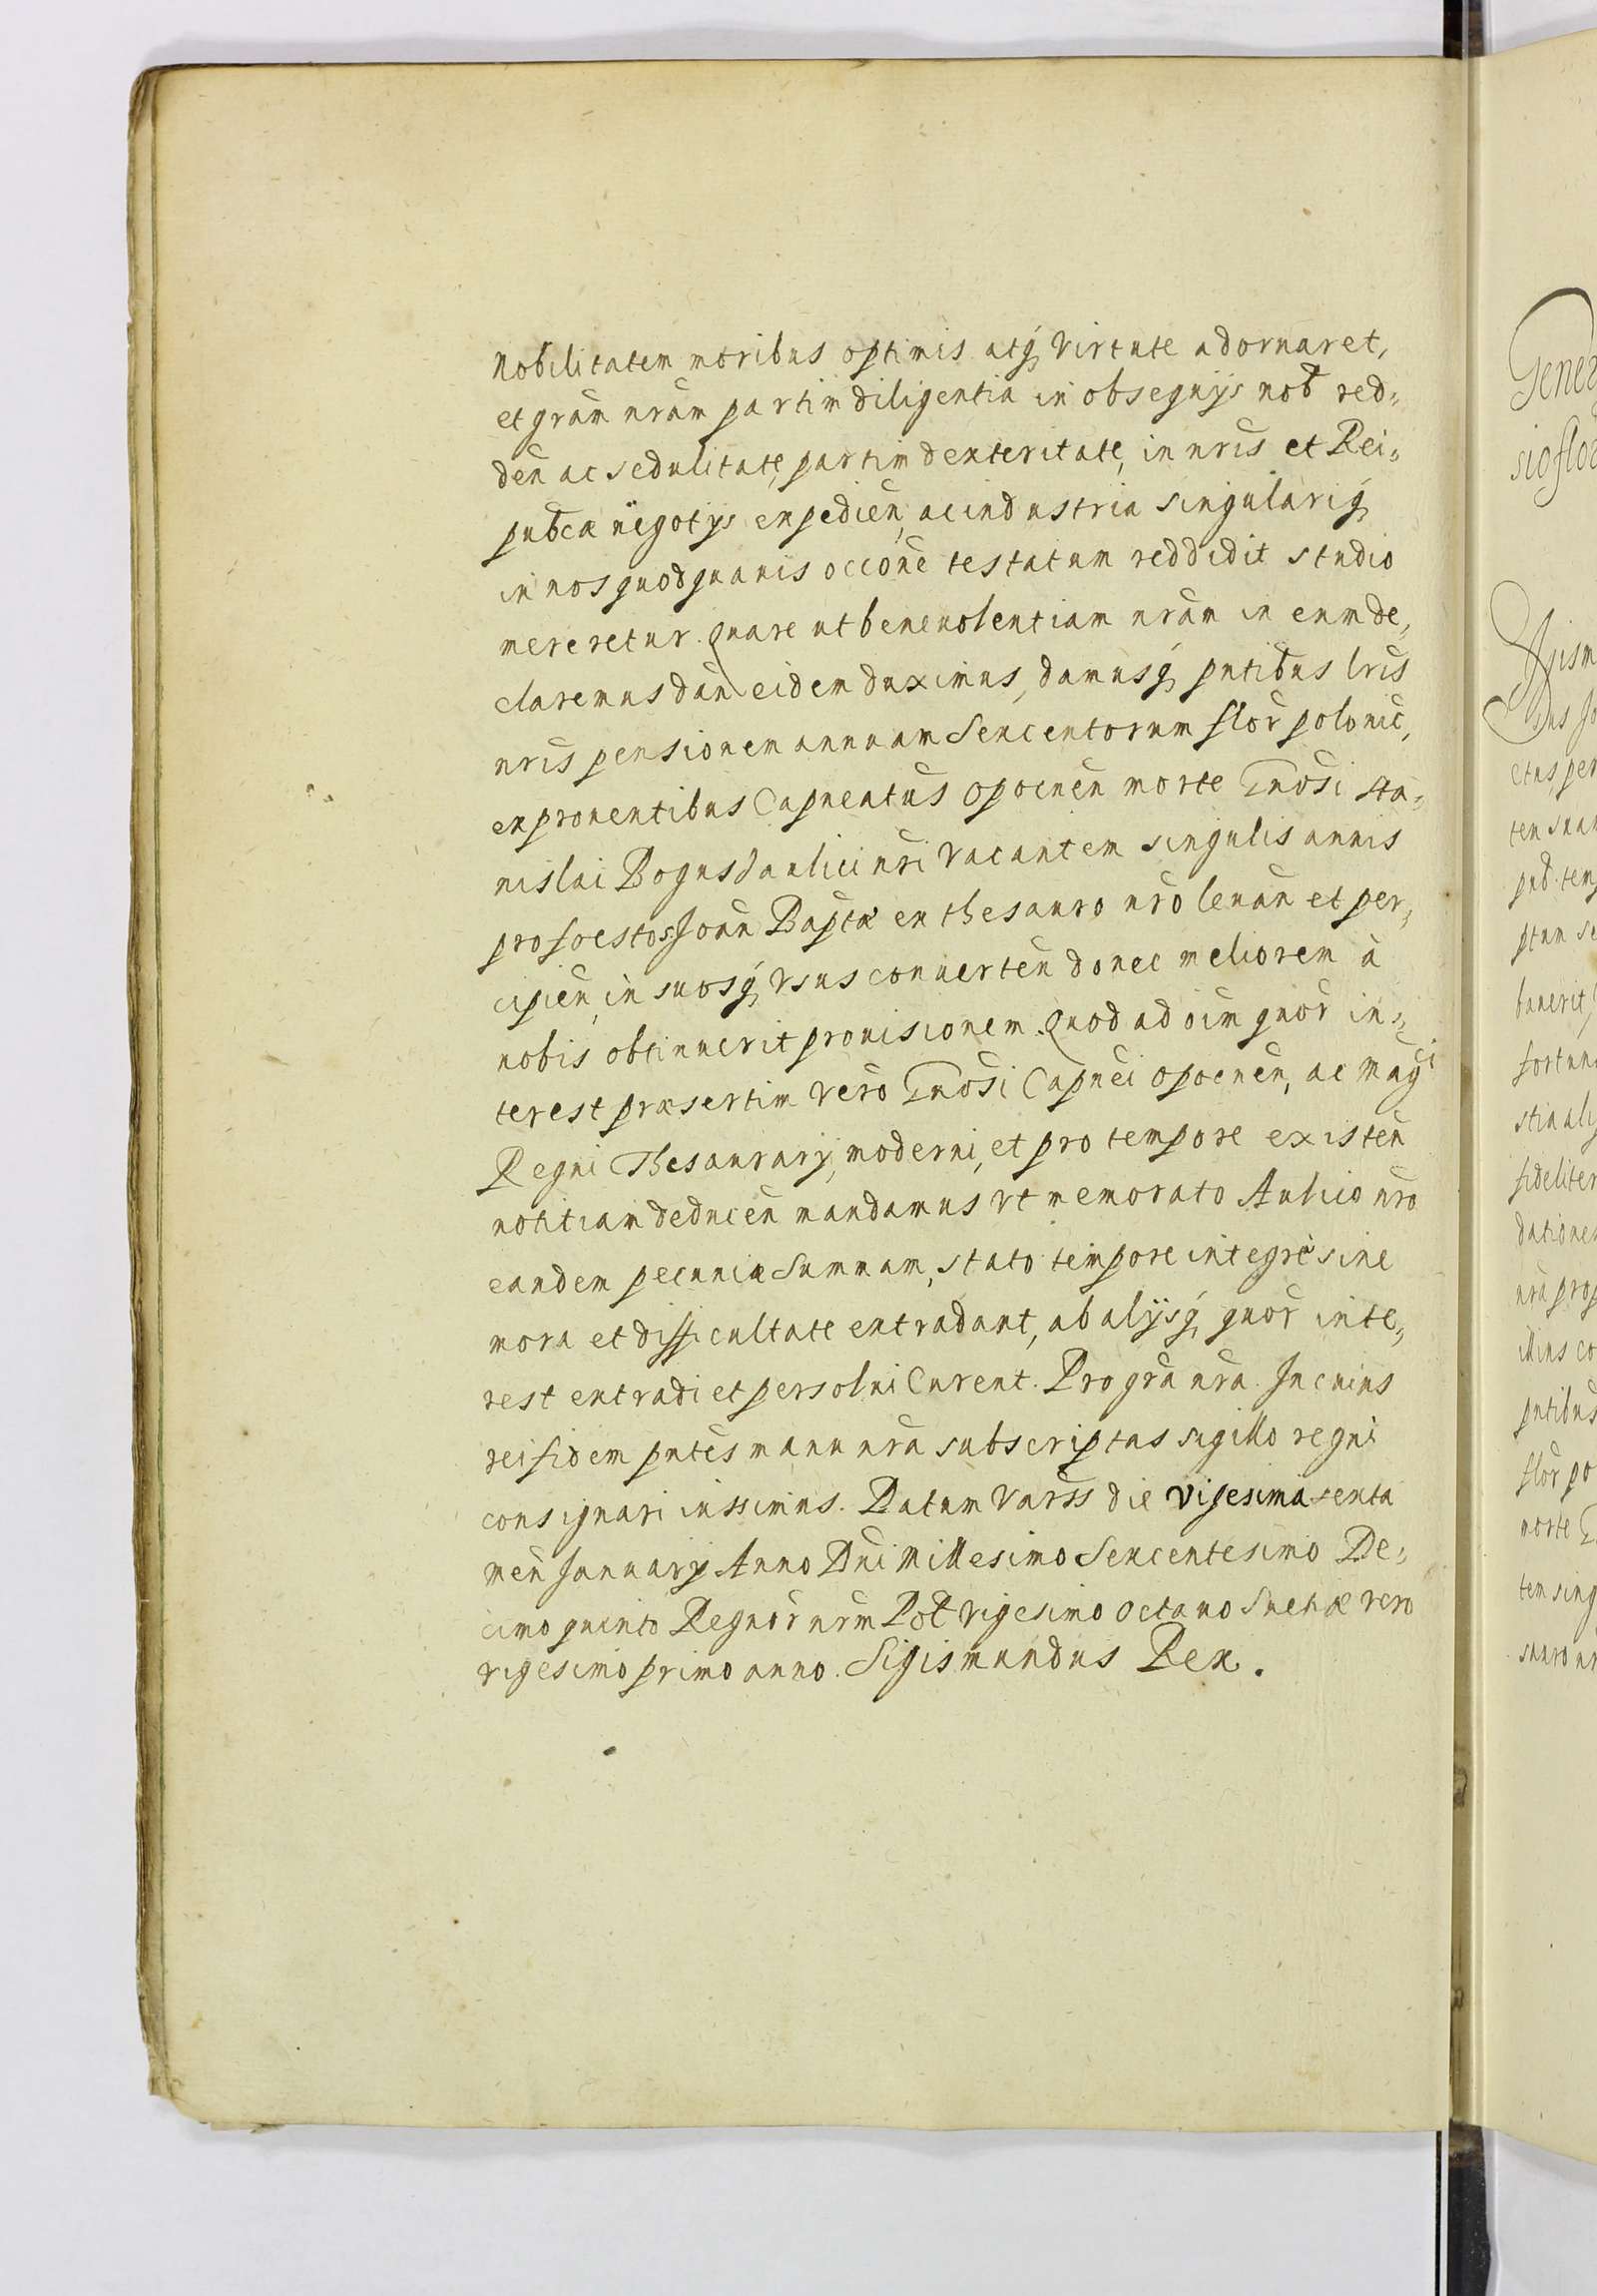 Nobilitatem moribus optimis atq, virtute adornaret,
et grãm nrãm partim diligentia in obsequijs nob̃ red,,
deñ ac sedulitate, partim dexteritate, in nris et Rei,,
pubcæ negotijs expedieñ, ac industria singulariq,
in nos quodquauis occõne testatum reddidit studio
mereretur. Quare ut beneuolentiam nrãm in eum de,,
claremus dañ eidem duximus, damusq, pntibus lris
nris pensionem annuam Sexcentorum flor̃ polonic̃,
ex prouentibus Capneatus Opocneñ morte Gnosi Sta,,
nislai Bogusz aulici nri vacantem singulis annis
pro foesto S. Joañ Baptæ ex thesauro nro leuañ et per,,
cipieñ, in suosq, vsus conuerteñ donec meliorem à
nobis obtinuerit prouisionem. Quod ad oim quor̃ in,,
terest præsertim vero Gnosi Capnei Opocneñ, ac Magci
Regni Thesaurarij, moderni, et pro tempore existeñ
notitiam deduceñ mandamus vt memorato Aulico nro
eandem pecuniæ Summam, stato tempore integrè sine
mora et difficultate extradant, ab alijsq, quor̃ inte,,
rest extradi et persolui Curent. Pro gra nra. In cuius
rei fidem pntes manu nra subscriptas sigillo regni
consignari iussimus. Datum Varss die vigesima sexta
men̄ Januarij Anno Dni Millesimo Sexcentesimo De,,
cimo quinto Regnor̃ nrm Pol̃ vigesimo octauo Suetiæ vero
vigesimo primo anno. Sigismundus Rex.
Gener
sio flor
Sigism
etus, per
ten suam
pub. tem
ptum se
bauerit,
fortun
stin alij
fideliter
datione
nra prop
illius co
pntibus
flor po
morte G
tem sing
sauro nr